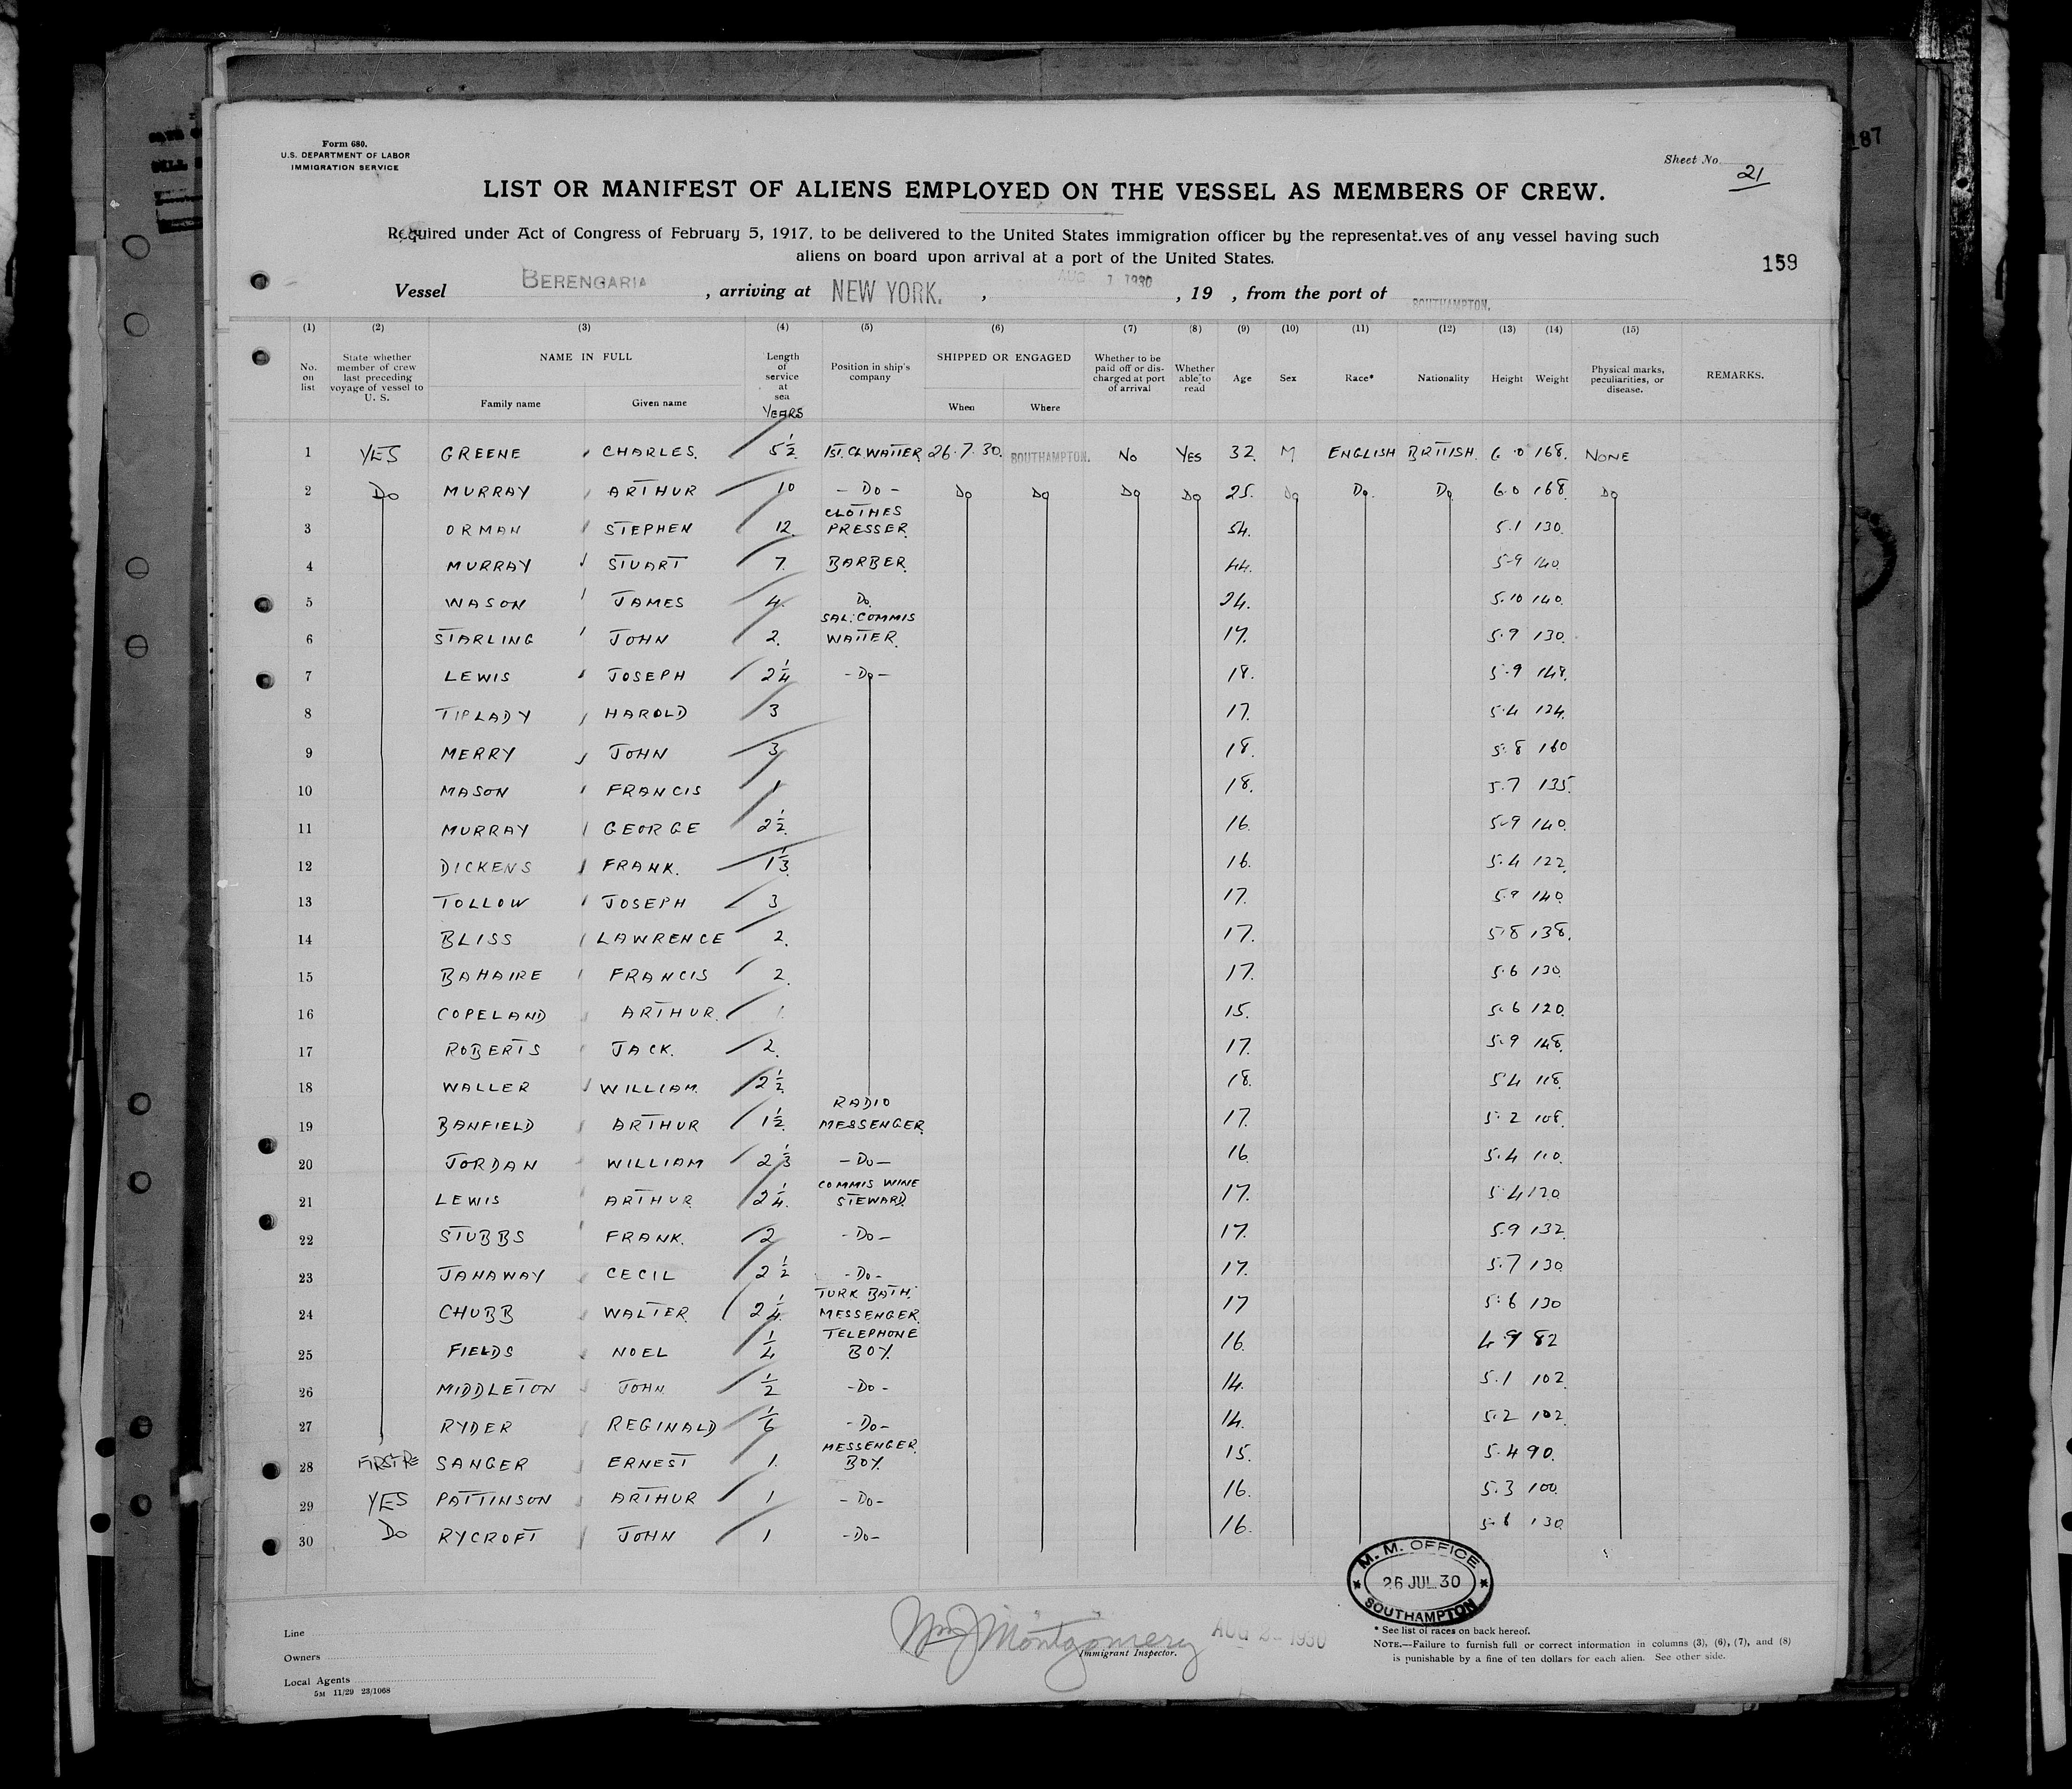 187
Form 680.
U.S. DEPARTMENT OF LABOR
IMMIGRATION SERVICE
Sheet No. 21
LIST OR MANIFEST OF ALIENS EMPLOYED ON THE VESSEL AS MEMBERS OF CREW.
Required under Act of Congress of February 5, 1917, to be delivered to the United States immigration officer by the representatives of any vessel having such
aliens on board upon arrival at a port of the United States.
159
Vessel BERENGARIA, arriving at NEW YORK., AUG 1 1930, 19 , from the port of SOUTHAMPTON.
(1) (2) (3) (4) (5) (6) (7) (8) (9) (10) (11) (12) (13) (14) (15)
No. on list State whether member of crew last preceding voyage of vessel to U. S. NAME IN FULL Family name Given name Length of service at sea YEARS Position in ship's company SHIPPED OR ENGAGED When Where Whether to be paid off or discharged at port of arrival Whether able to read Age Sex Race* Nationality Height Weight Physical marks, peculiarities, or disease. REMARKS.
1 YES GREENE CHARLES. 5½ 1ST. CL WAITER 26.7.30. SOUTHAMPTON. NO YES 32. M ENGLISH BRITISH. 6.0 168. NONE
2 DO MURRAY ARTHUR 10 - DO - DO DO DO DO 25. DO DO. DO 6.0 168. DO
3 ORMAN STEPHEN 12. CLOTHES PRESSER. 54. 5.1 130.
4 MURRAY STUART 7. BARBER. 44. 5-9 140.
5 WASON JAMES 4. DO. 24. 5.10 140.
6 STARLING JOHN 2. SAL: COMMIS WAITER. 17. 5.9 130.
7 LEWIS JOSEPH 2¼ - DO - 18. 5.9 148.
8 TIPLADY HAROLD 3 17. 5.4 124.
9 MERRY JOHN 3 18. 5.8 160
10 MASON FRANCIS 1 18. 5.7 135.
11 MURRAY GEORGE 2½ 16. 5-9 140.
12 DICKENS FRANK. 1⅓ 16. 5.4 122.
13 TOLLOW JOSEPH 3 17. 5.9 140.
14 BLISS LAWRENCE 2. 17. 5.8 138.
15 BAHAIRE FRANCIS 2. 17. 5.6 130.
16 COPELAND ARTHUR. 1. 15. 5.6 120.
17 ROBERTS JACK. 2. 17. 5.9 148.
18 WALLER WILLIAM. 2½ 18. 5.4 118.
19 BANFIELD ARTHUR 1½ RADIO MESSENGER. 17. 5.2 108.
20 JORDAN WILLIAM 2⅓ - DO - 16. 5.4 110.
21 LEWIS ARTHUR. 2¼. COMMIS WINE STEWARD. 17. 5.4 120
22 STUBBS FRANK. 2 - DO - 17. 5.9 132.
23 JANAWAY CECIL 2½ - DO - 17. 5.7 130
24 CHUBB WALTER. 2¼. TURK BATH. MESSENGER. 17 5.6 130
25 FIELDS NOEL ¼ TELEPHONE BOY. 16. 4.9 82
26 MIDDLETON JOHN. ½ - DO - 14. 5.1 102
27 RYDER REGINALD ⅙ - DO - 14. 5.2 102.
28 SANGER ERNEST 1. MESSENGER. BOY. 15. 5.4 90.
29 YES PATTINSON ARTHUR 1 - DO - 16. 5.3 100.
30 DO RYCROFT JOHN 1 - DO - 16. 5.6 130.
M. M. OFFICE
26 JUL 30
SOUTHAMPTON
Wm J Montgomery AUG 2 - 1930
Immigrant Inspector.
Line
Owners
Local Agents
5M 11/29 23/1068
* See list of races on back hereof.
NOTE.—Failure to furnish full or correct information in columns (3), (6), (7), and (8)
is punishable by a fine of ten dollars for each alien. See other side.